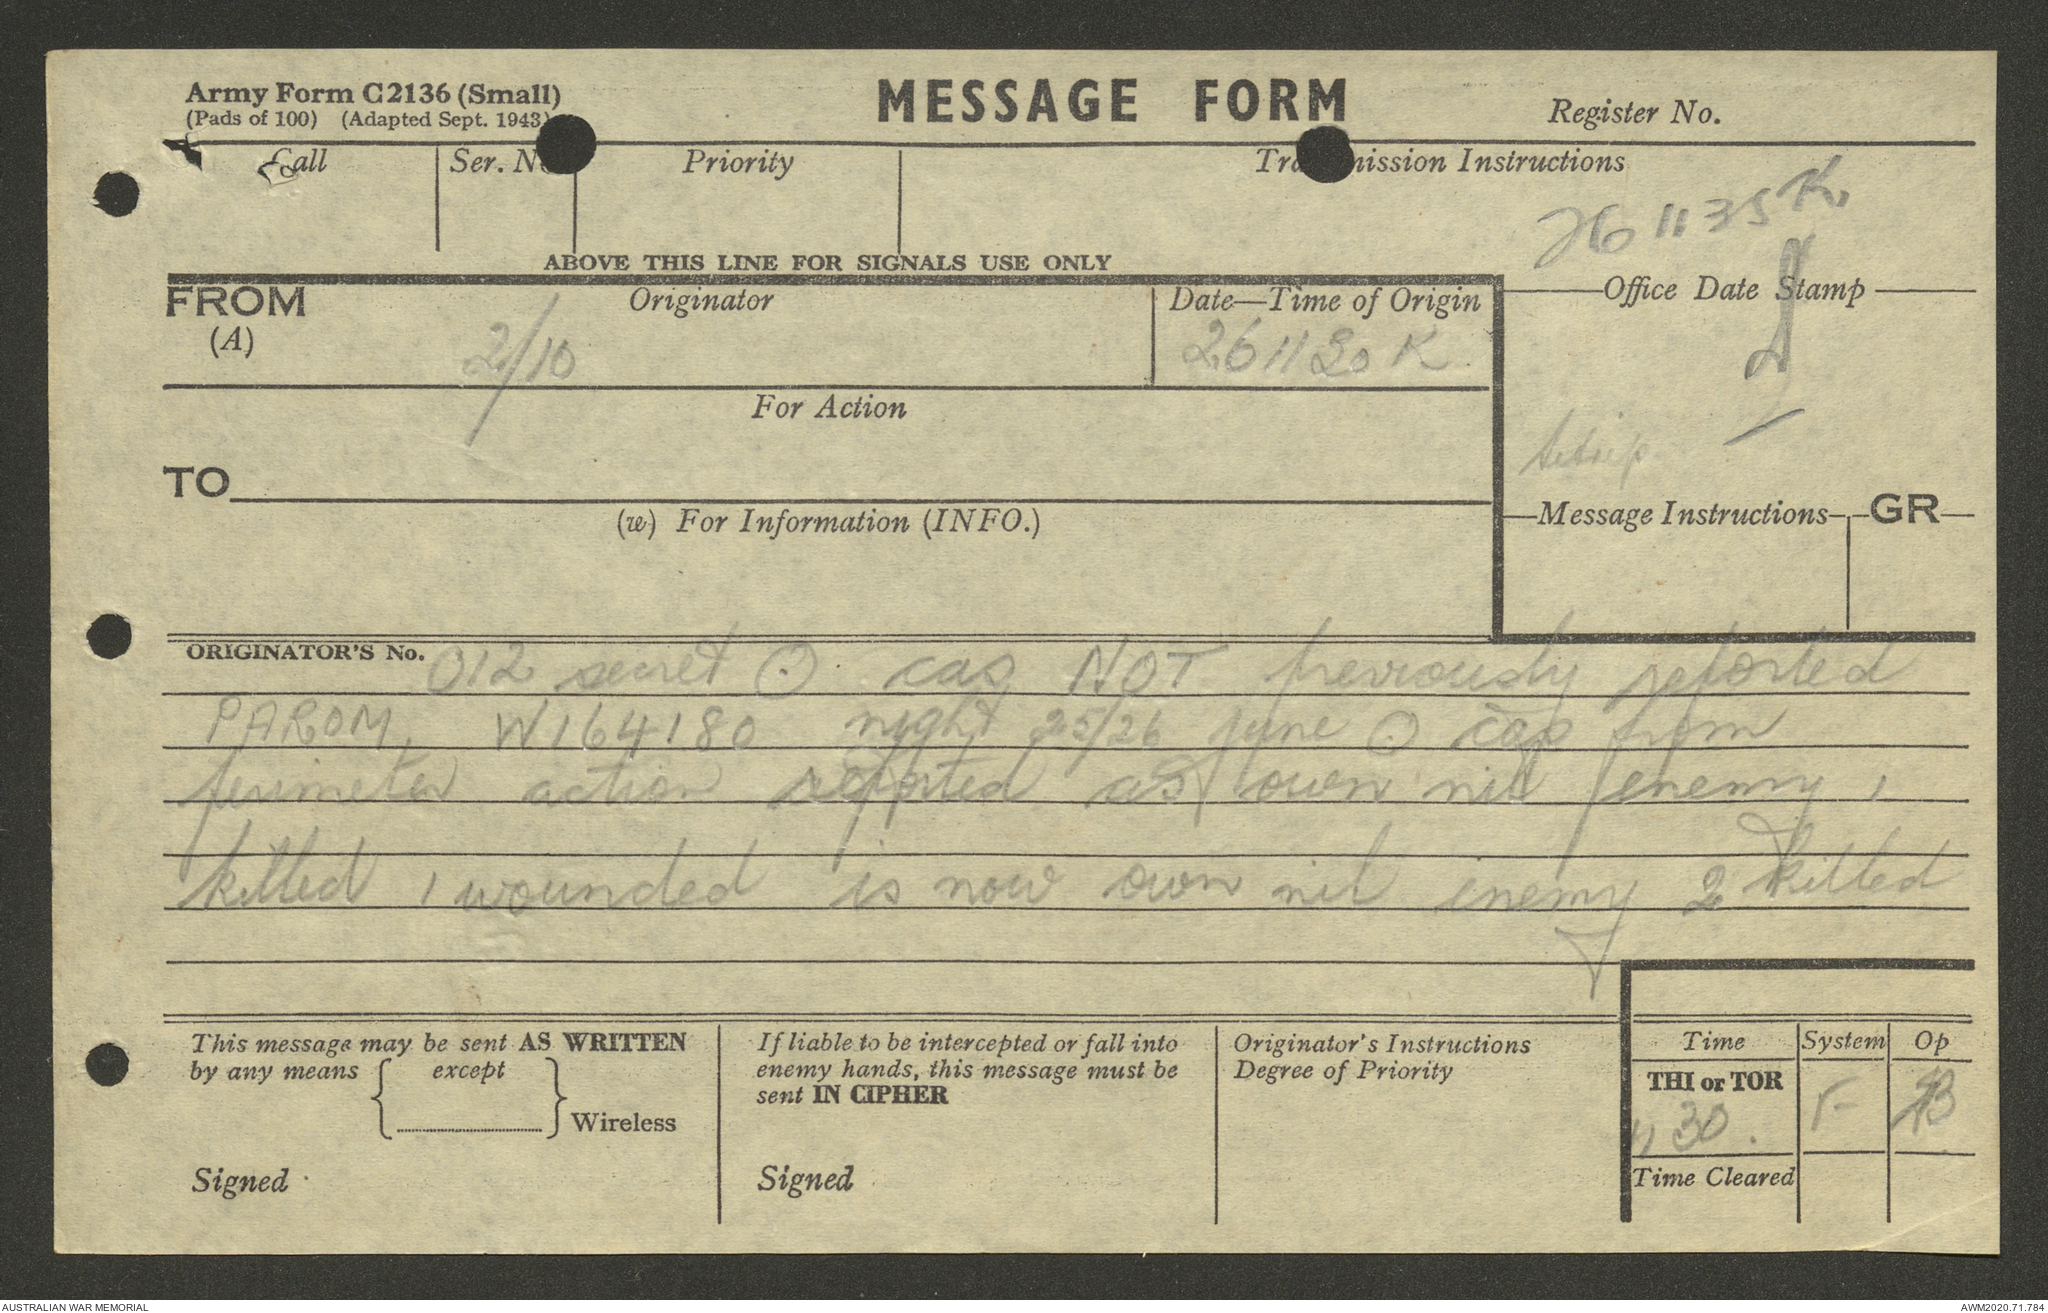 Army Form C2136 (Small)
(Pads of 100) (Adapted Sept. 1943)
MESSAGE FORM
Register No.
Call
Ser. No
Priority
Transmission Instructions
261135K
ABOVE THIS LINE FOR SIGNALS USE ONLY
FROM
(A)
Originator
2/10
Date—Time of Origin
261130K
Office Date Stamp
For Action
TO
(w) For Information (INFO.)
Message Instructions
GR
ORIGINATOR'S No.
012 secret ⊙ cas NOT previously reported
PAROM W164180 night 25/26 june ⊙ cas from
perimeter action reported as own nil enemy 1
killed 1 wounded is now own nil enemy 2 killed
This message may be sent AS WRITTEN
by any means except
Wireless
Signed
If liable to be intercepted or fall into
enemy hands, this message must be
sent IN CIPHER
Signed
Originator's Instructions
Degree of Priority
Time
System
Op
THI or TOR
1130.
F
Time Cleared
AUSTRALIAN WAR MEMORIAL
AWM2020.71.784